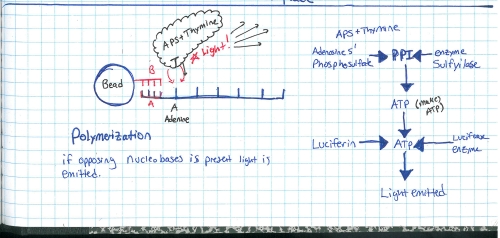 APS + Thymine
T
Light!
Bead
B
A
A
Adenine
Polymerization
if opposing nucleobases is present light is
emitted.
APS + Thymine
Adenosine 5'
Phosphosulfate
PPI
enzyme
Sulfyilase
ATP (makes ATP)
Luciferin
ATP
Luciferase
enzyme
Light emitted